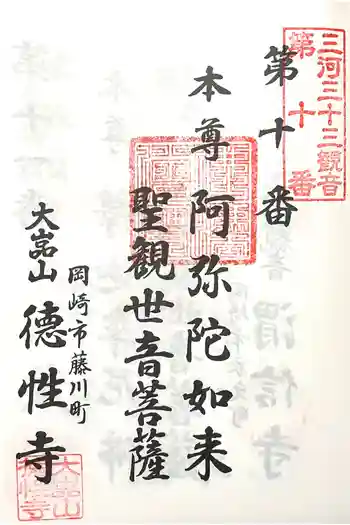 三河三十三観音
第十番
第十番
本尊 阿弥陀如来
聖観世音菩薩
岡崎市藤川町
大嵓山 德性寺